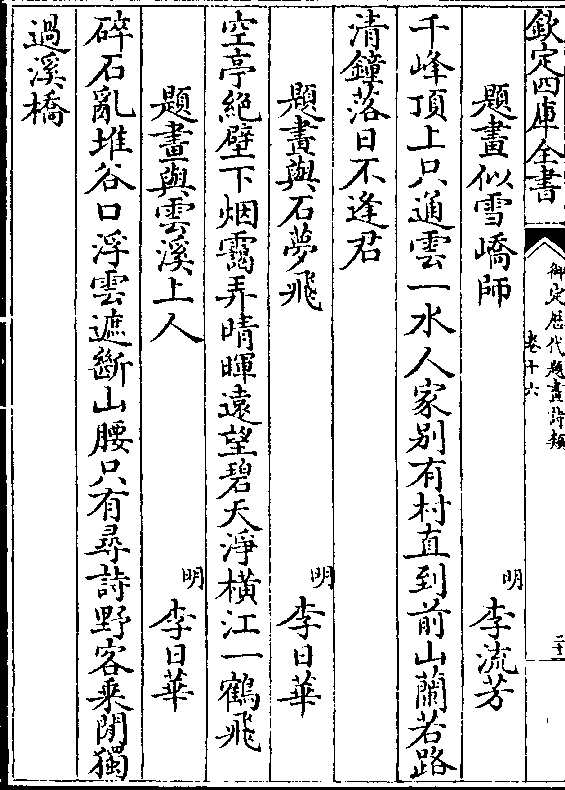 欽定四庫全書
御定歷代題畫詩類
卷十六
二十
題畫似雪嶠師
明
李流芳
千峰頂上只通雲一水人家别有村直到前山蘭若路
清鐘落日不逢君
題畫與石夢飛
明
李日華
空亭絶壁下烟靄弄晴暉遠望碧天淨橫江一鶴飛
題畫與雲溪上人
明
李日華
碎石亂堆谷口浮雲遮斷山腰只有尋詩野客乘閒獨
過溪橋